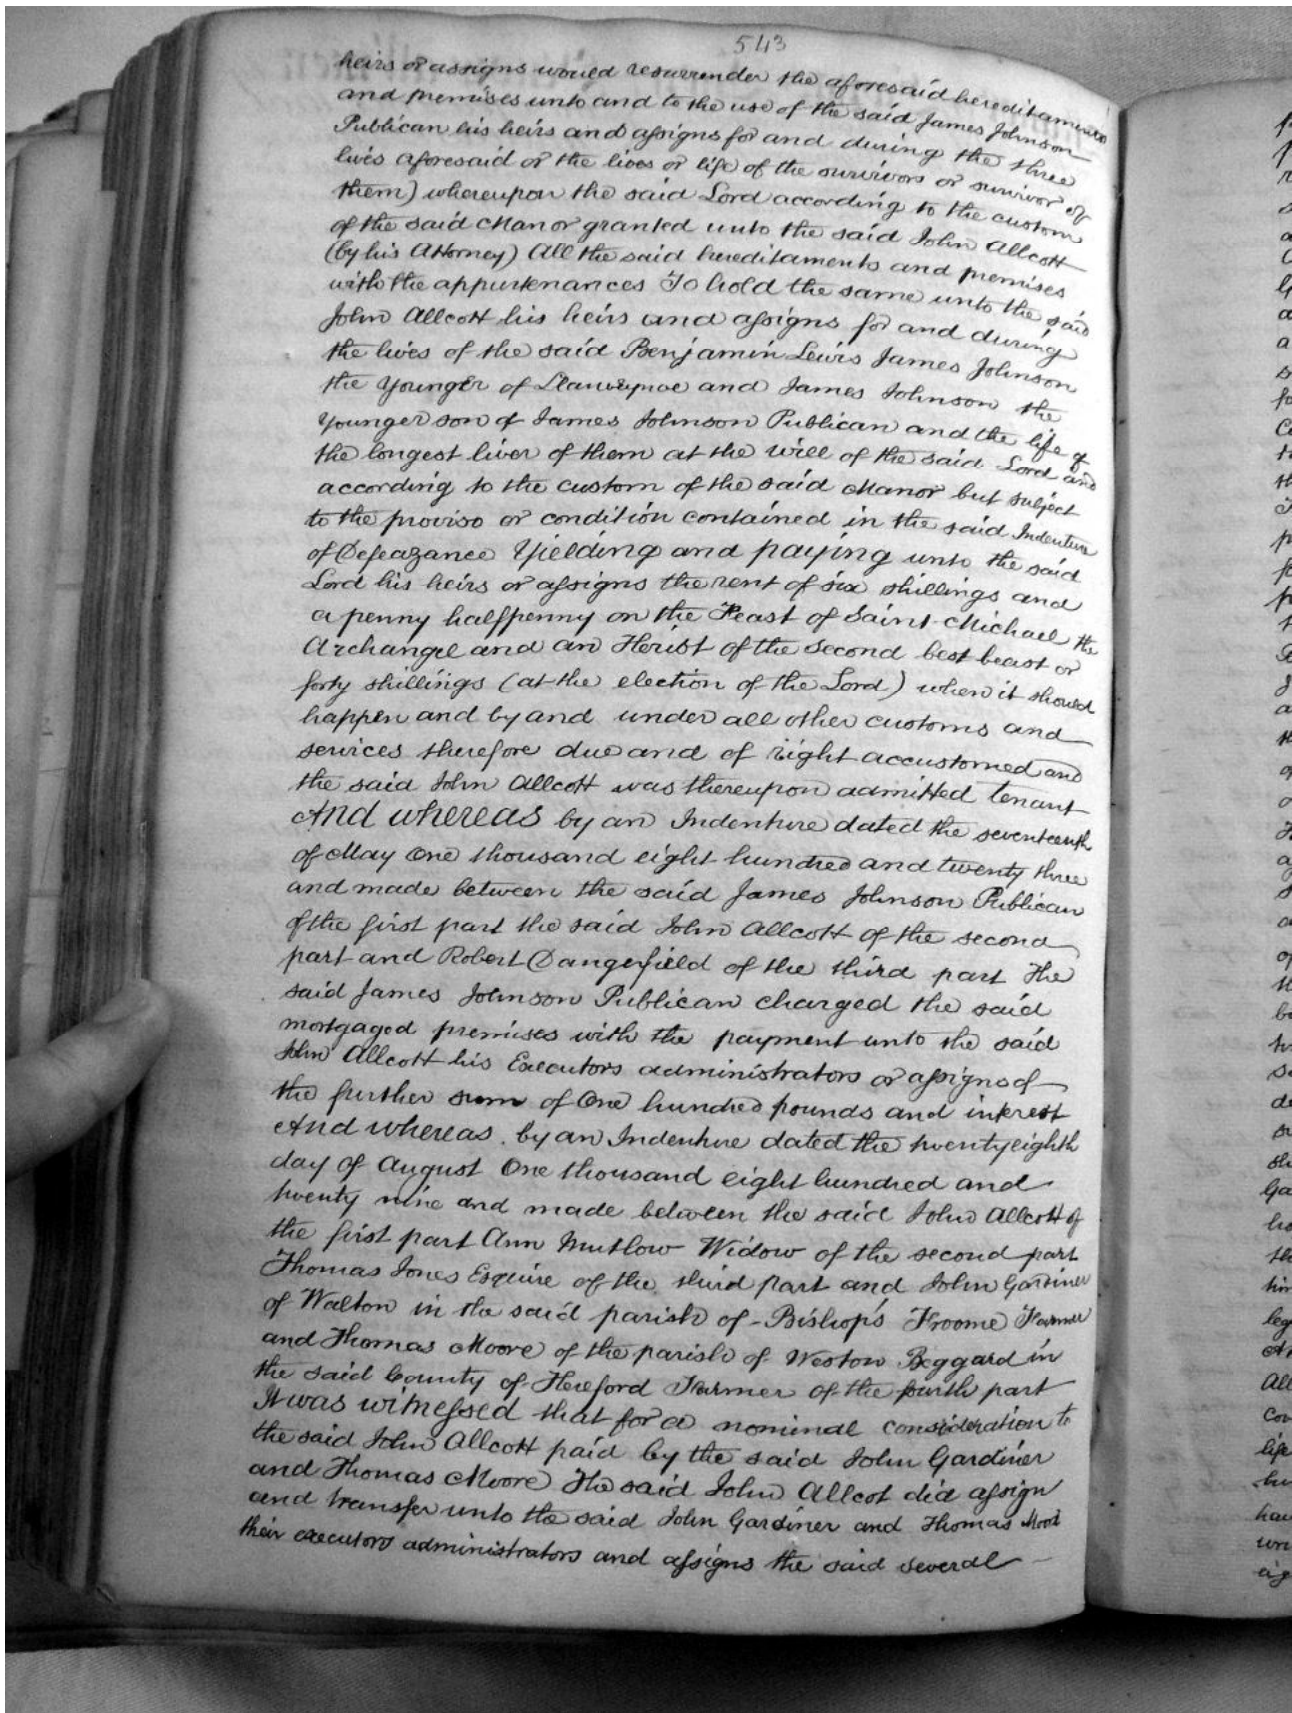 543
heirs or assigns would resurrender the aforesaid hereditaments
and premises unto and to the use of the said James Johnson
Publican his heirs and assigns for and during the three
lives aforesaid or the lives or life of the survivors or survivor of
them) whereupon the said Lord according to the custom
of the said Manor granted unto the said John Allcott
(by his Attorney) All the said hereditaments and premises
with the appurtenances To hold the same unto the said
John Allcott his heirs and assigns for and during
the lives of the said Benjamin Lewis James Johnson
the Younger of Llanveynoe and James Johnson the
Younger son of James Johnson Publican and the life of
the longest liver of them at the will of the said Lord and
according to the custom of the said Manor but subject
to the proviso or condition contained in the said Indenture
of Defeazance Yielding and paying unto the said
Lord his heirs or assigns the rent of six shillings and
a penny halfpenny on the Feast of Saint Michael the
Archangel and an Heriot of the second best beast or
forty shillings (at the election of the Lord) when it should
happen and by and under all other customs and
services therefore due and of right accustomed and
the said John Allcott was thereupon admitted tenant
And whereas by an Indenture dated the seventeenth
of May One thousand eight hundred and twenty three
and made between the said James Johnson Publican
of the first part the said John Allcott of the second
part and Robert Dangerfield of the third part The
said James Johnson Publican charged the said
mortgaged premises with the payment unto the said
John Allcott his Executors administrators or assigns of
the further sum of One hundred pounds and interest
And whereas by an Indenture dated the twenty eighth
day of August One thousand eight hundred and
twenty nine and made between the said John Allcott of
the first part Ann Mutlow Widow of the second part
Thomas Jones Esquire of the third part and John Gardiner
of Walton in the said parish of Bishop's Froome Farmer
and Thomas Moore of the parish of Weston Beggard in
the said County of Hereford Farmer of the fourth part
It was witnessed that for a nominal consideration to
the said John Allcott paid by the said John Gardiner
and Thomas Moore The said John Allcot did assign
and transfer unto the said John Gardiner and Thomas
their executors administrators and assigns the said several